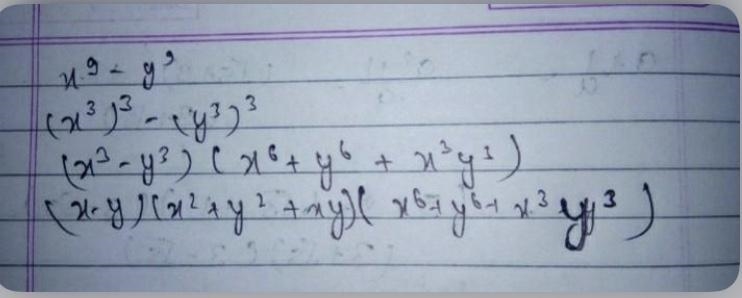 x⁹ - y⁹
(x³)³ - (y³)³
(x³ - y³) (x⁶ + y⁶ + x³y³)
(x - y) (x² + y² + xy) (x⁶ + y⁶ + x³y³)